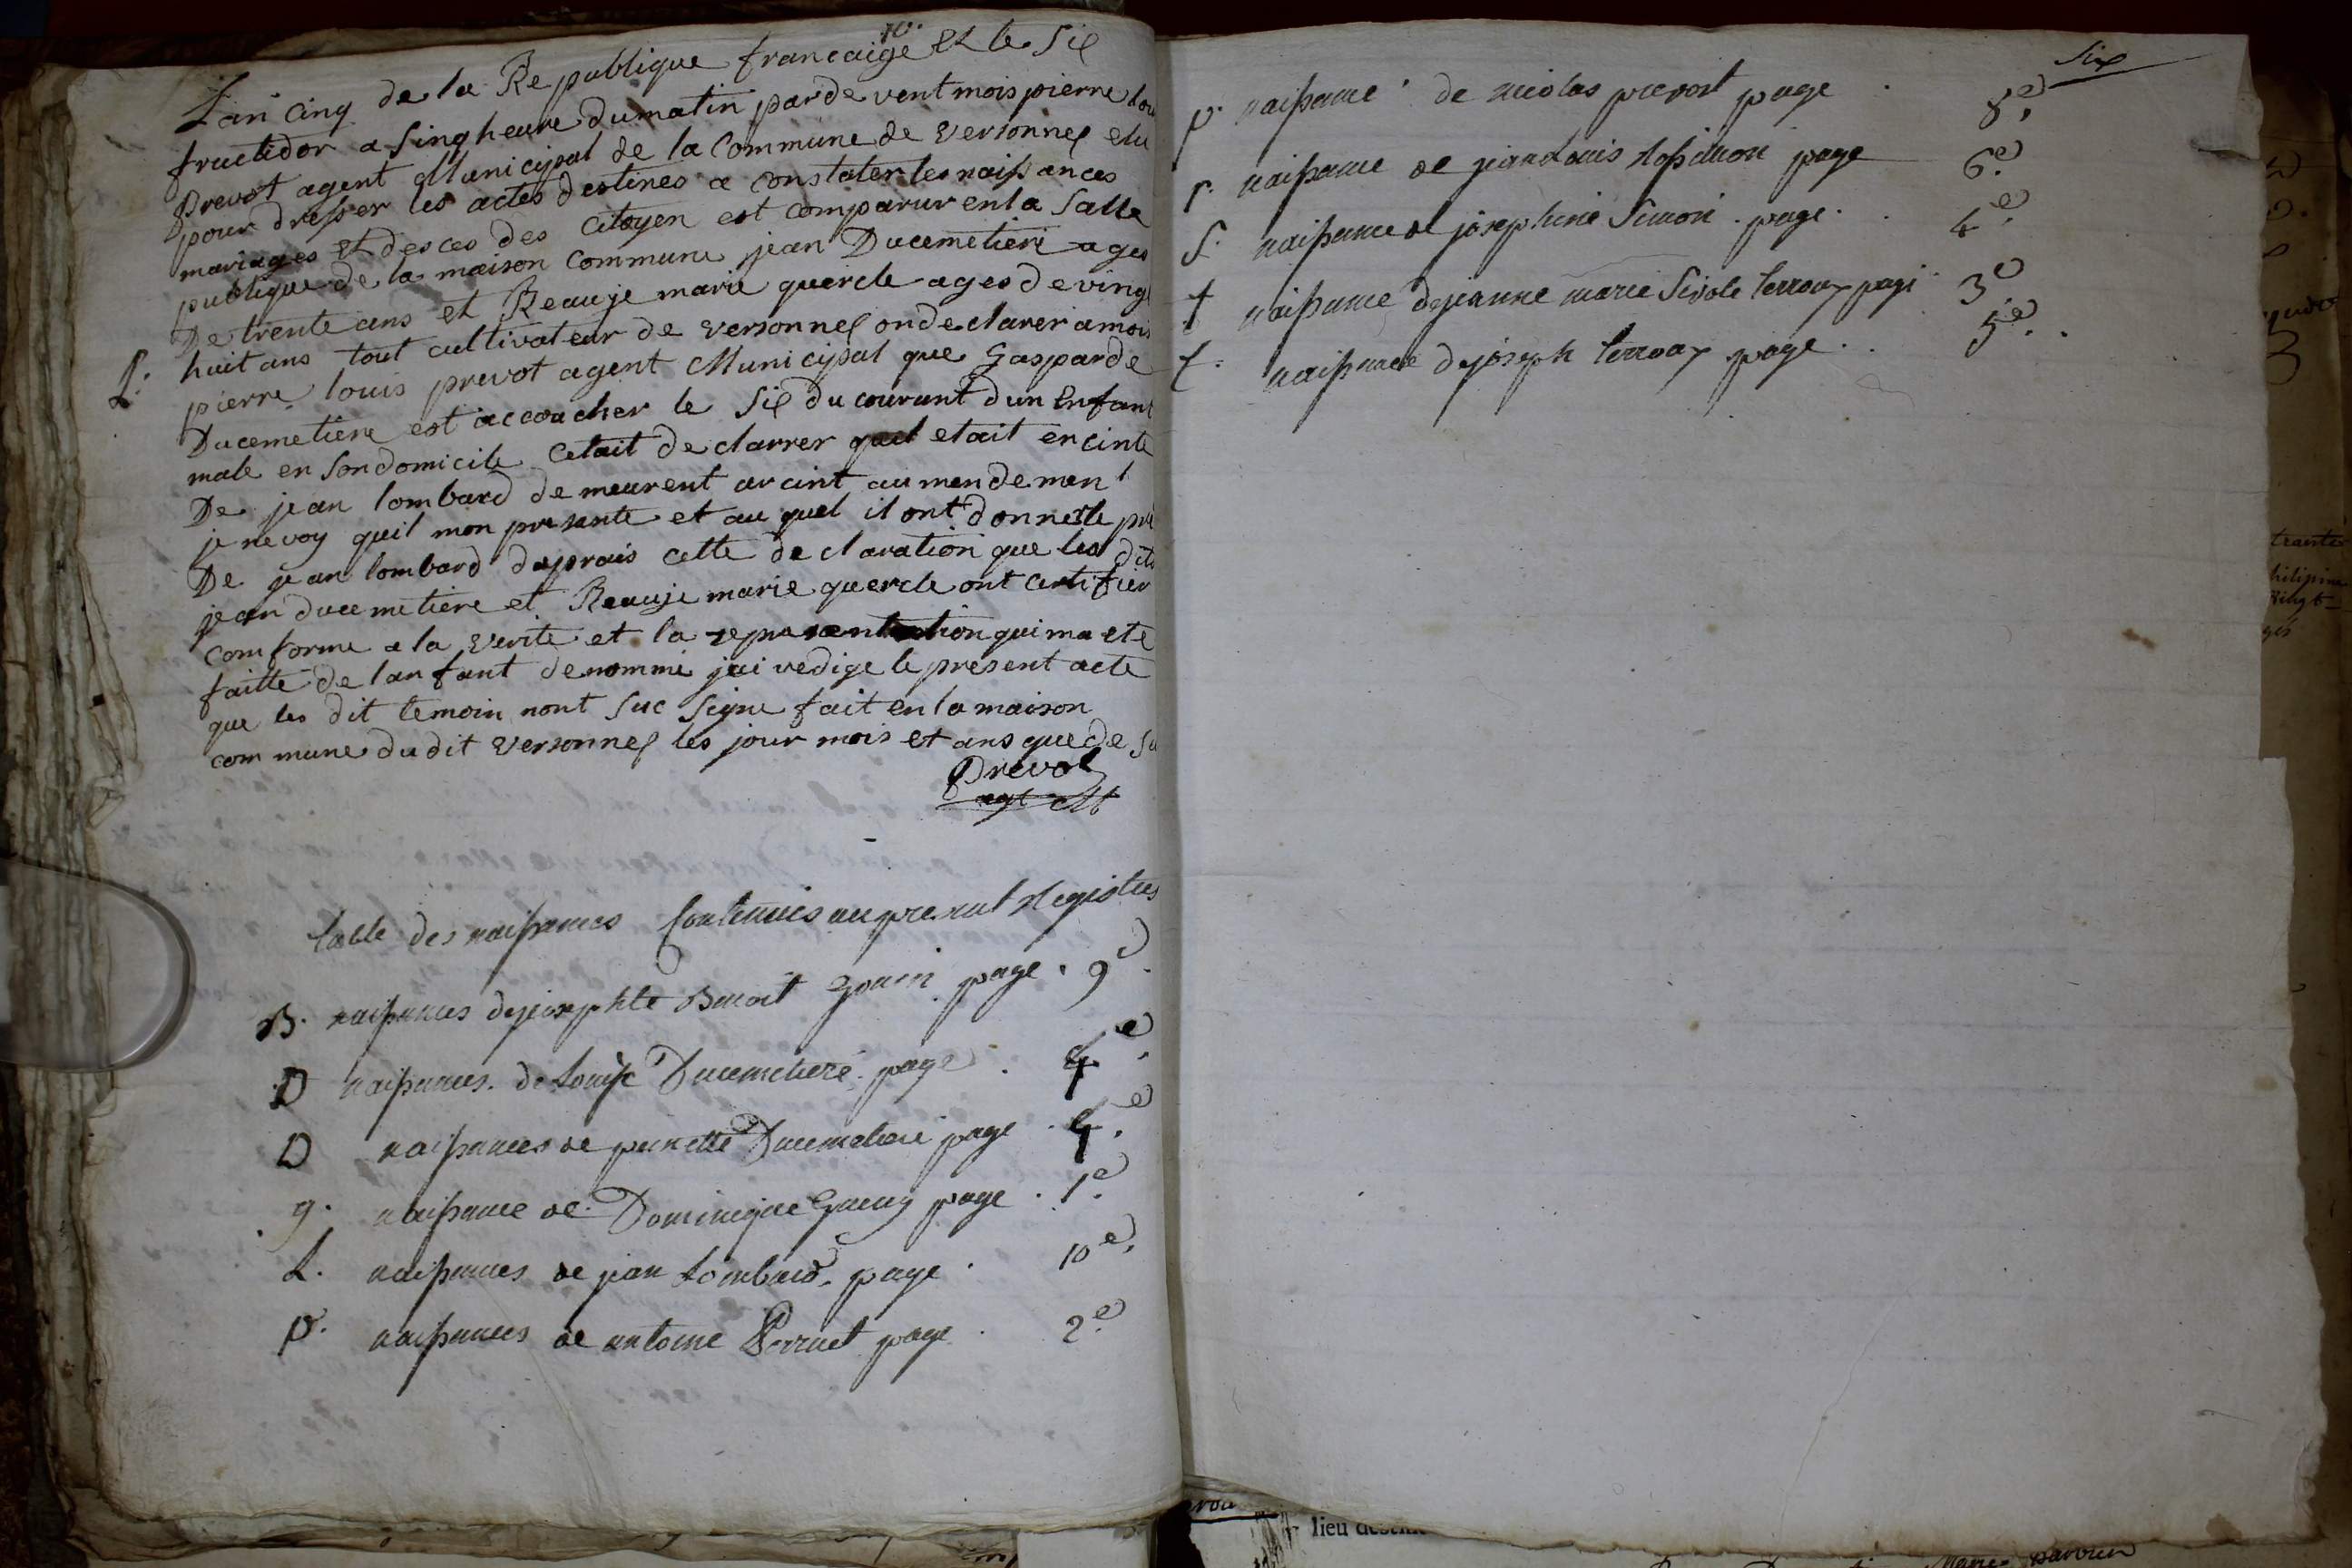 10.
Lan cinq de la Republique francaige et le Six
fructidor a Singheure dumatin pardevent mois pierre lou
prevot agent Municipal de la Commune de Versonnex elu
pour dresser les actes destines a constater les naissances
mariages et desces des Citoyen est comparur en la Salle
publique de la maison Commune jean Ducemetiere ages
De trente ans et Reauje marie quercle ages de vingt
huit ans tout cultivateur de versonnex on declarer a mois
L. pierre louis prevot agent Municipal que Gasparde
Ducemetiere est accoucher le Six du courant dun Enfant
male en Son domicile Cetait declarrer quil etait encinte
De jean lombard demeurent arcint au mendement
je nevoy quil mon presente et au quel il ont donner le pre
De jean lombard daprais cette declaration que les dits
jean ducemetiere et Reauje marie quercle ont certifier
comforme a la verite et la representation qui ma ete
faitte de lanfant denomme jai redige le present acte
que les dit temoin nont Suc Signe fait en la maison
commune du dit Versonnex les jour mois et ans que de Su
Prevot
agt M
table des naissances Contenues au present Registres
B. naissances de josephte Benoit Gonin page . 9e.
D naissances. de Louise Ducemetiere page . 4e.
D naissances de pernette Ducemetiere page . 4e.
g. naissance de Dominique Gueny page . 1e.
L. naissances de jean Lombard. page . 10e.
p. naissances de antoine Perruet page . 2e.
Six
p. naissance de nicolas prevost page . 8e.
r. naissance de jean Louis Rossillion page 6e.
S. naissance de josephine Simon . page . 4e.
t naissance de jeanne marie Terroux page 3e
t. naissance de joseph terroux page . . 5e.
lieu